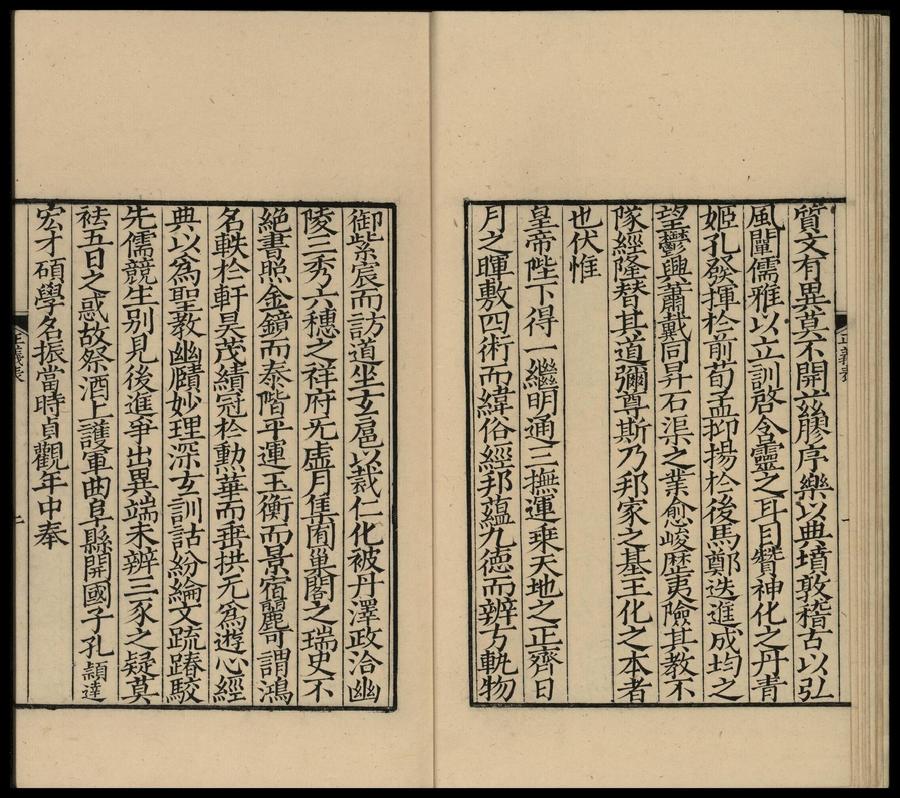 質文有異莫不開茲膠序樂以典墳敦稽古以弘
風闡儒雅以立訓啓含靈之耳目贊神化之丹青
姬孔發揮於前荀孟抑揚於後馬鄭迭進成均之
望鬱興蕭戴同昇石渠之業愈峻歷夷險其教不
隊經隆替其道彌尊斯乃邦家之基王化之本者
也伏惟
皇帝陛下得一繼明通三撫運乗天地之正齊日
月之暉敷四術而緯俗經邦蘊九德而辨方軌物
御紫宸而訪道坐玄扈以裁仁化被丹澤政洽幽
陵三秀六穗之祥府无虚月集囿巢閣之瑞史不
絶書照金鏡而泰階平運玉衡而景宿麗可謂鴻
名軼於軒昊茂績冠於勲華而垂拱无爲遊心經
典以爲聖教幽賾妙理深玄訓詁紛綸文疏踳駮
先儒競生别見後進爭出異端未辨三豕之疑莫
祛五日之惑故祭酒上護軍曲阜縣開國子孔穎達
宏才碩學名振當時貞觀年中奉
正義表
正義表